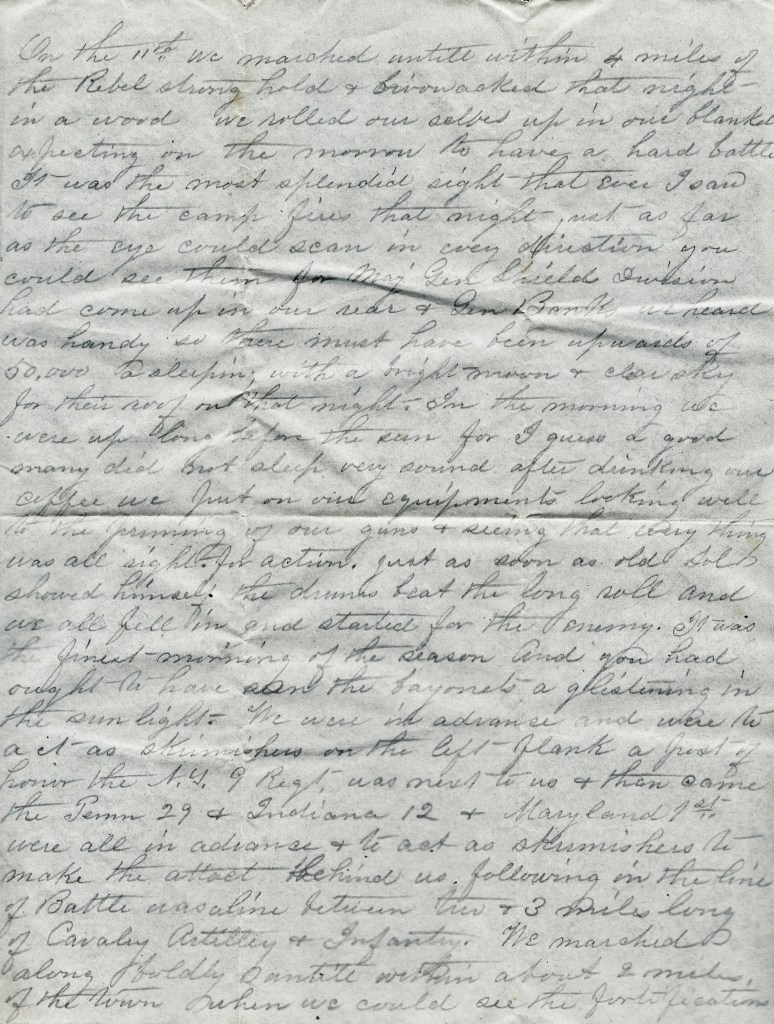 On the 11th we marched untill within 4 miles of
the Rebel strong hold & bivouacked that night
in a wood we rolled our selves up in our blanket
expecting on the morrow to have a hard battle
It was the most splendid sight that ever I saw
to see the camp fires that night just as far
as the eye could scan in evey direction you
could see them for Maj Gen Shield Division
had come up in our rear & Gen Bank we heard
was handy so there must have been upwards of
50,000 a sleeping with a bright moon & clear sky
for their roof on that night. In the morning we
were up long before the sun for I guess a good
many did not sleep very sound after drinking our
coffee we put on our equipments looking well
to the priming of our guns & seeing that every thing
was all right for action. just as soon as old Sol
showed himself the drums beat the long roll and
we all fell in and started for the enemy. It was
the finest morning of the season and you had
ought to have seen the bayonets a glistening in
the sun light. We were in advance and were to
act as skirmishers on the left flank a post of
honor the N.Y. 9 Regt, was next to us & then came
the Penn 29 & Indiana 12 & Maryland 1st
were all in advance & to act as skirmishers to
make the attact behind us following in the line
of Battle was a line between two & 3 miles long
of Cavaley Artilley & Infantry. We marched
along boldly untill within about 2 miles
of the town when we could see the fortification